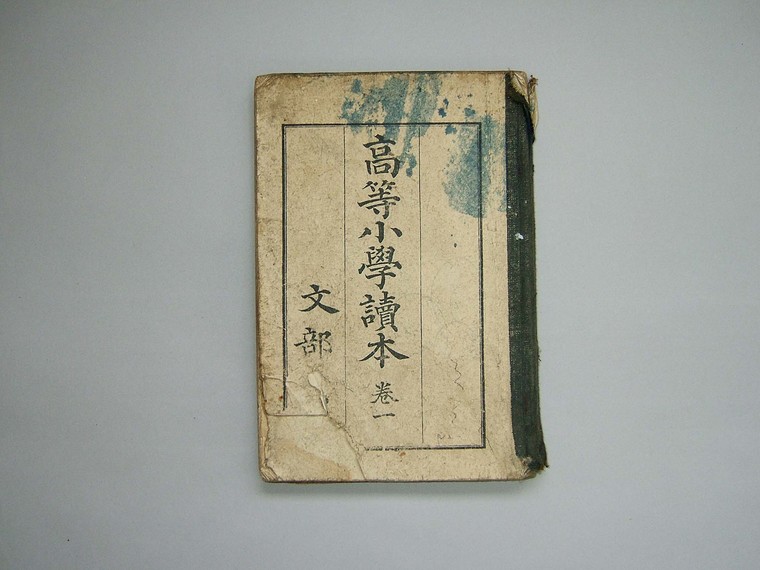 高等小學讀本 卷一
文部